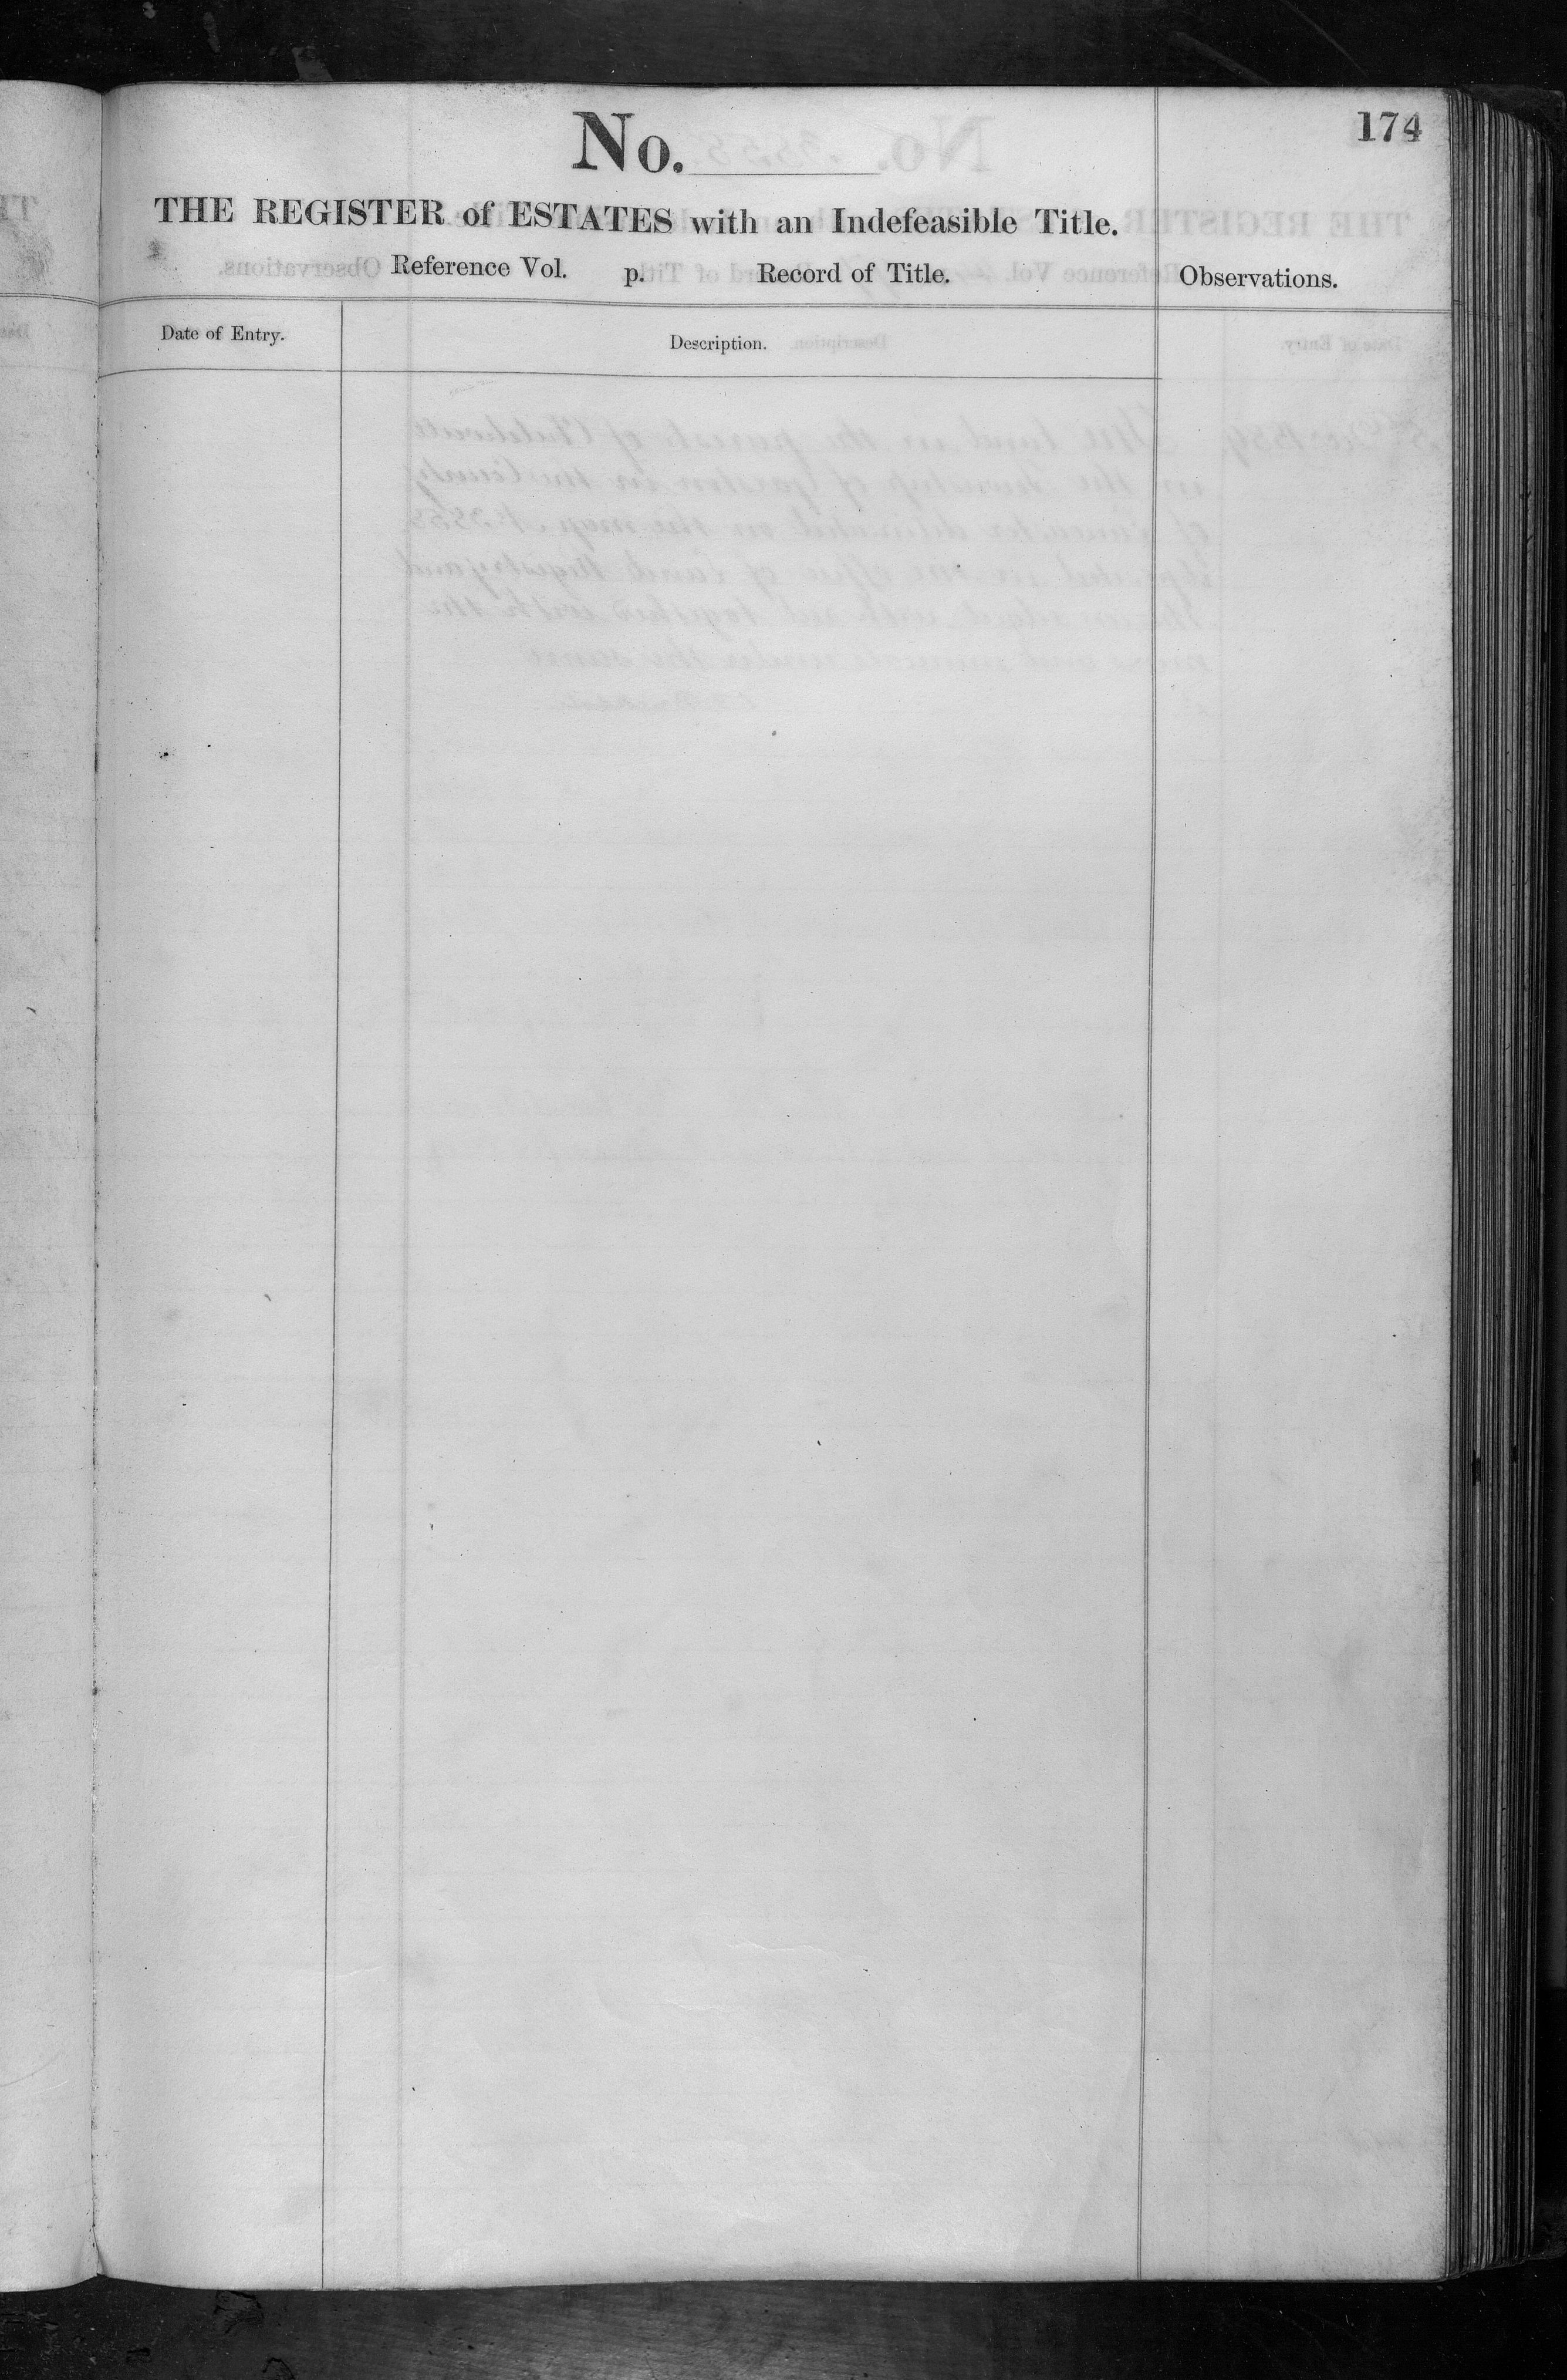 174
No.
THE REGISTER of ESTATES with an Indefeasible Title.
Reference Vol. p. Record of Title.
Observations.
Date of Entry.
Description.